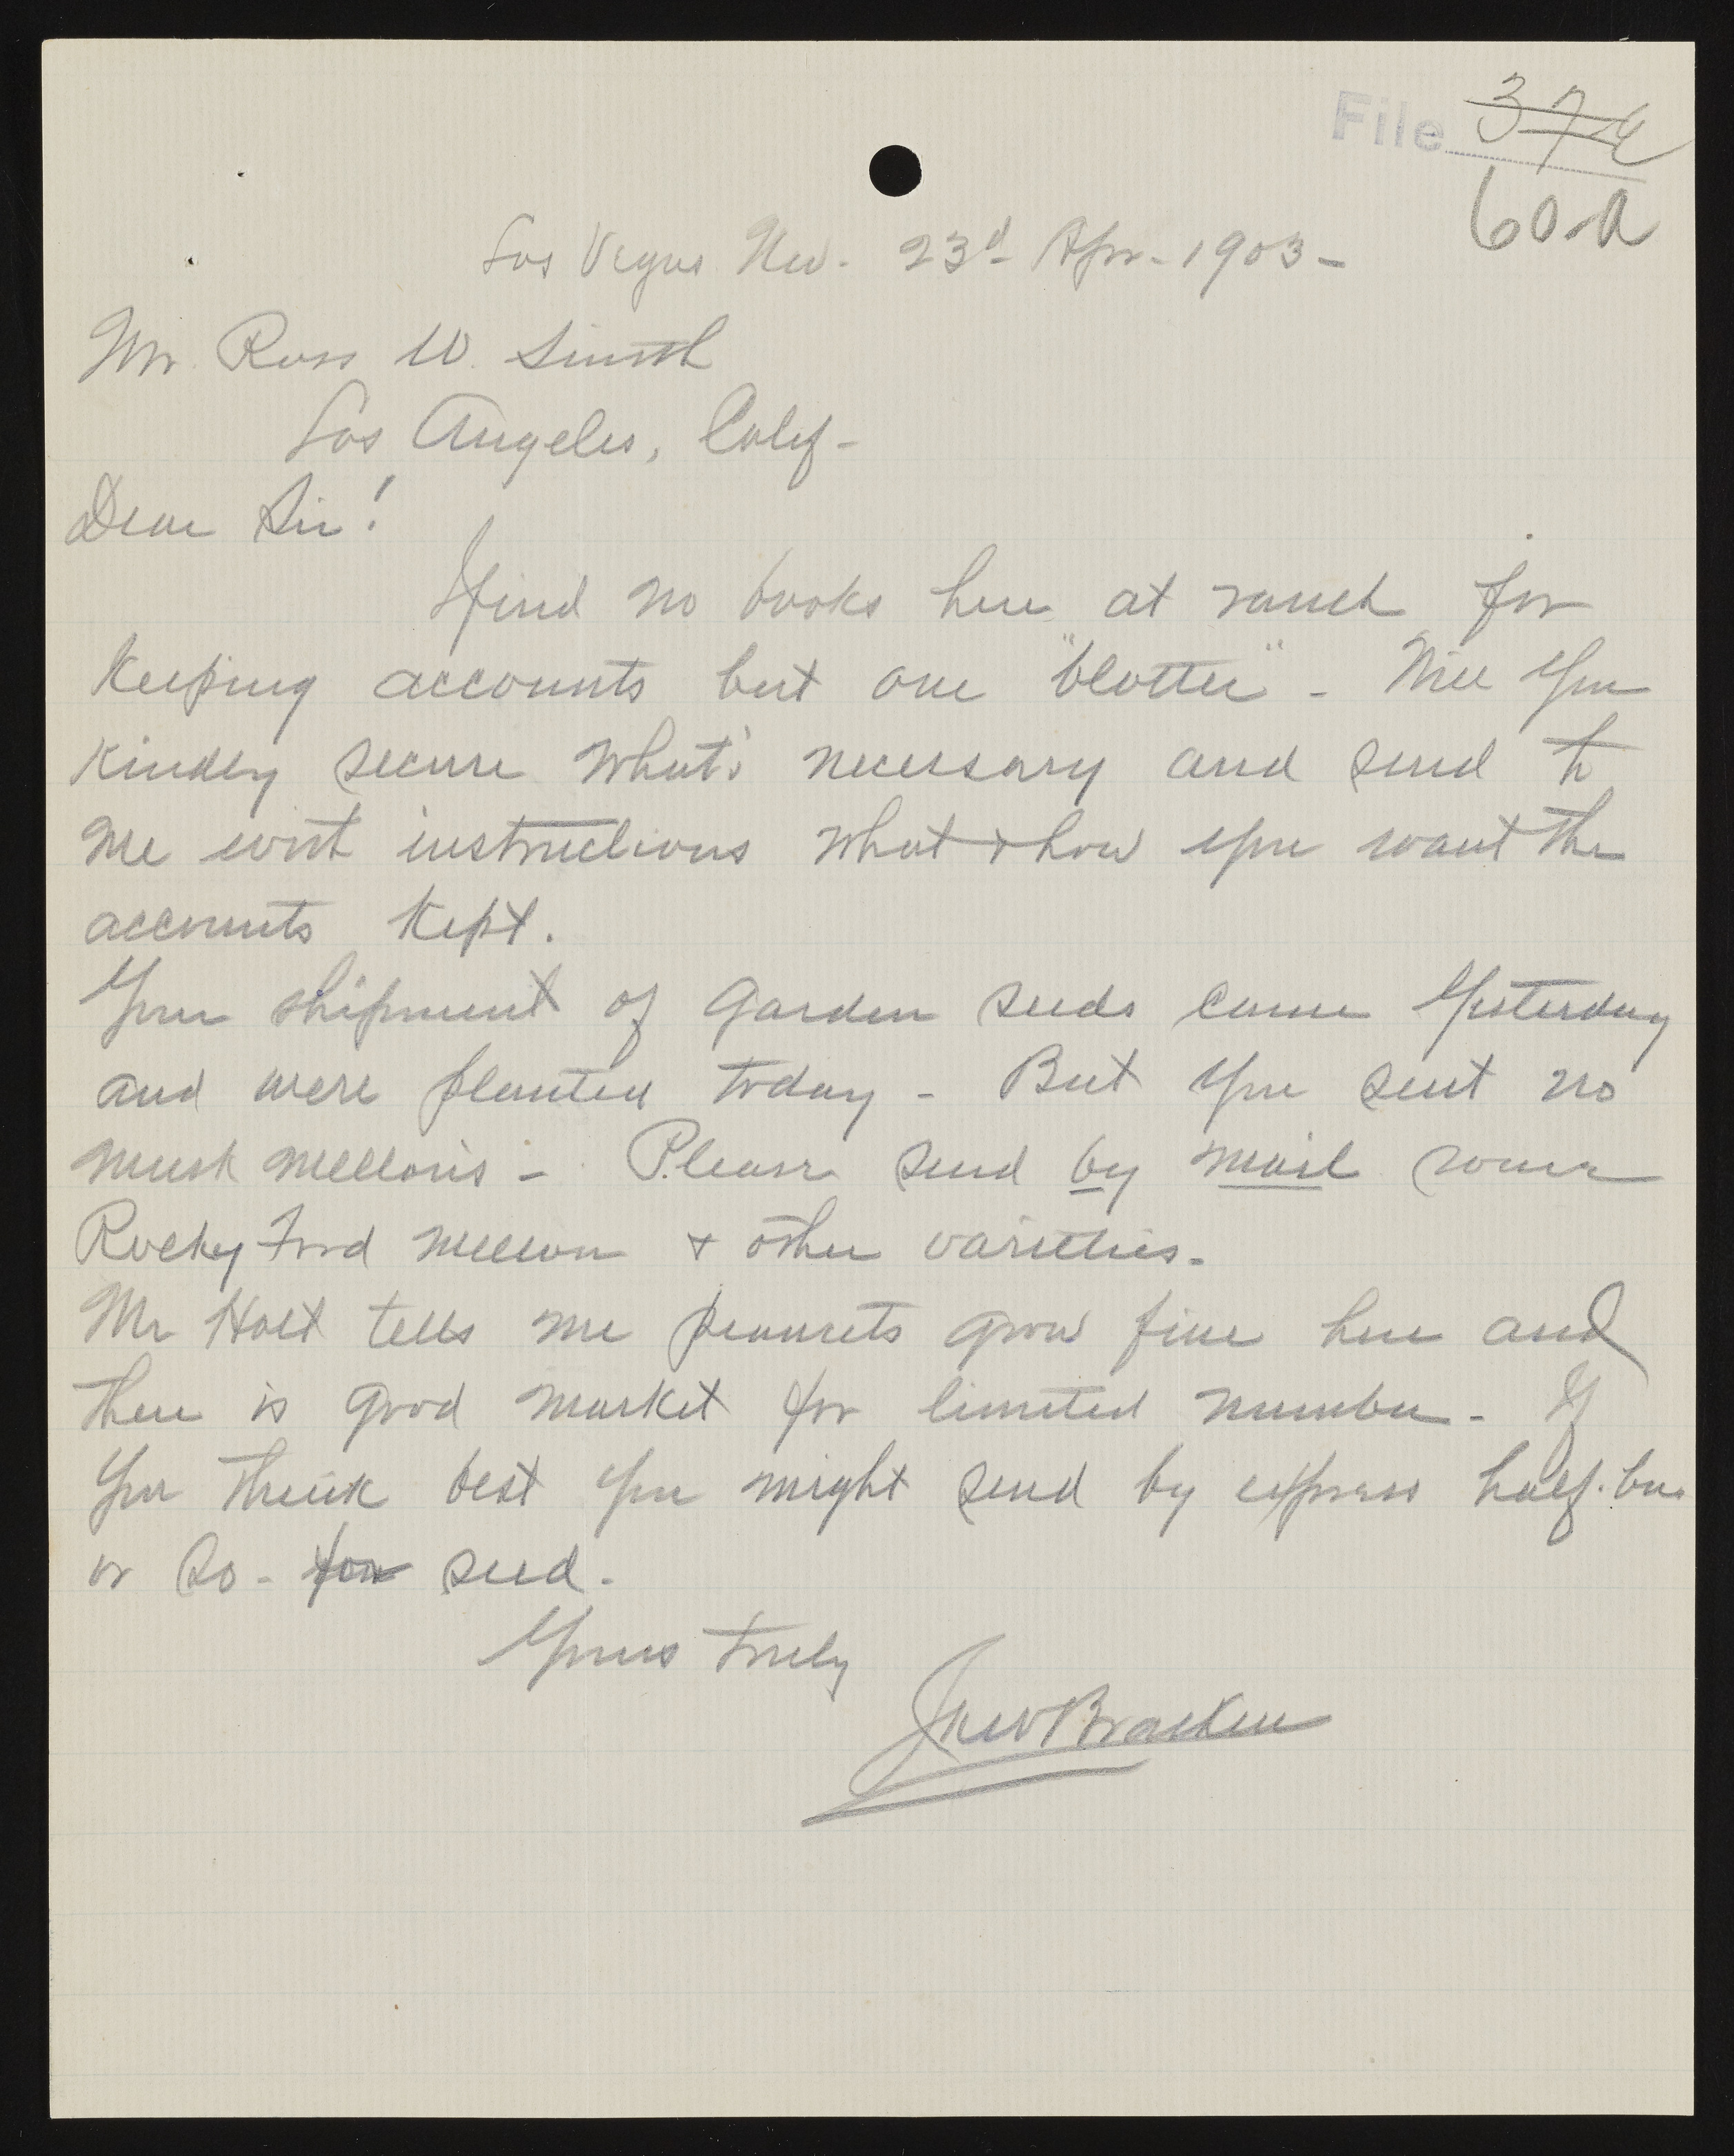 File 374
60-a
Las Vegas Nev. 23d Apr. 1903-
Mr. Ross W. Smith
Los Angeles, Calif-
Dear Sir!
I find no books here at ranch for
keeping accounts but one "blotter" - Will you
kindly secure what's necessary and send to
me with instructions what & how you want the
accounts kept.
Your shipment of garden seeds came yesterday
and were planted today - But you sent no
musk mellons - Please send by mail some
Rocky Ford mellon & other varieties.
Mr Holt tells me peanuts grow fine here and
there is good market for limited number - If
you think best you might send by express half-bu.
or so - for seed.
Yours truly
Walter Bracken